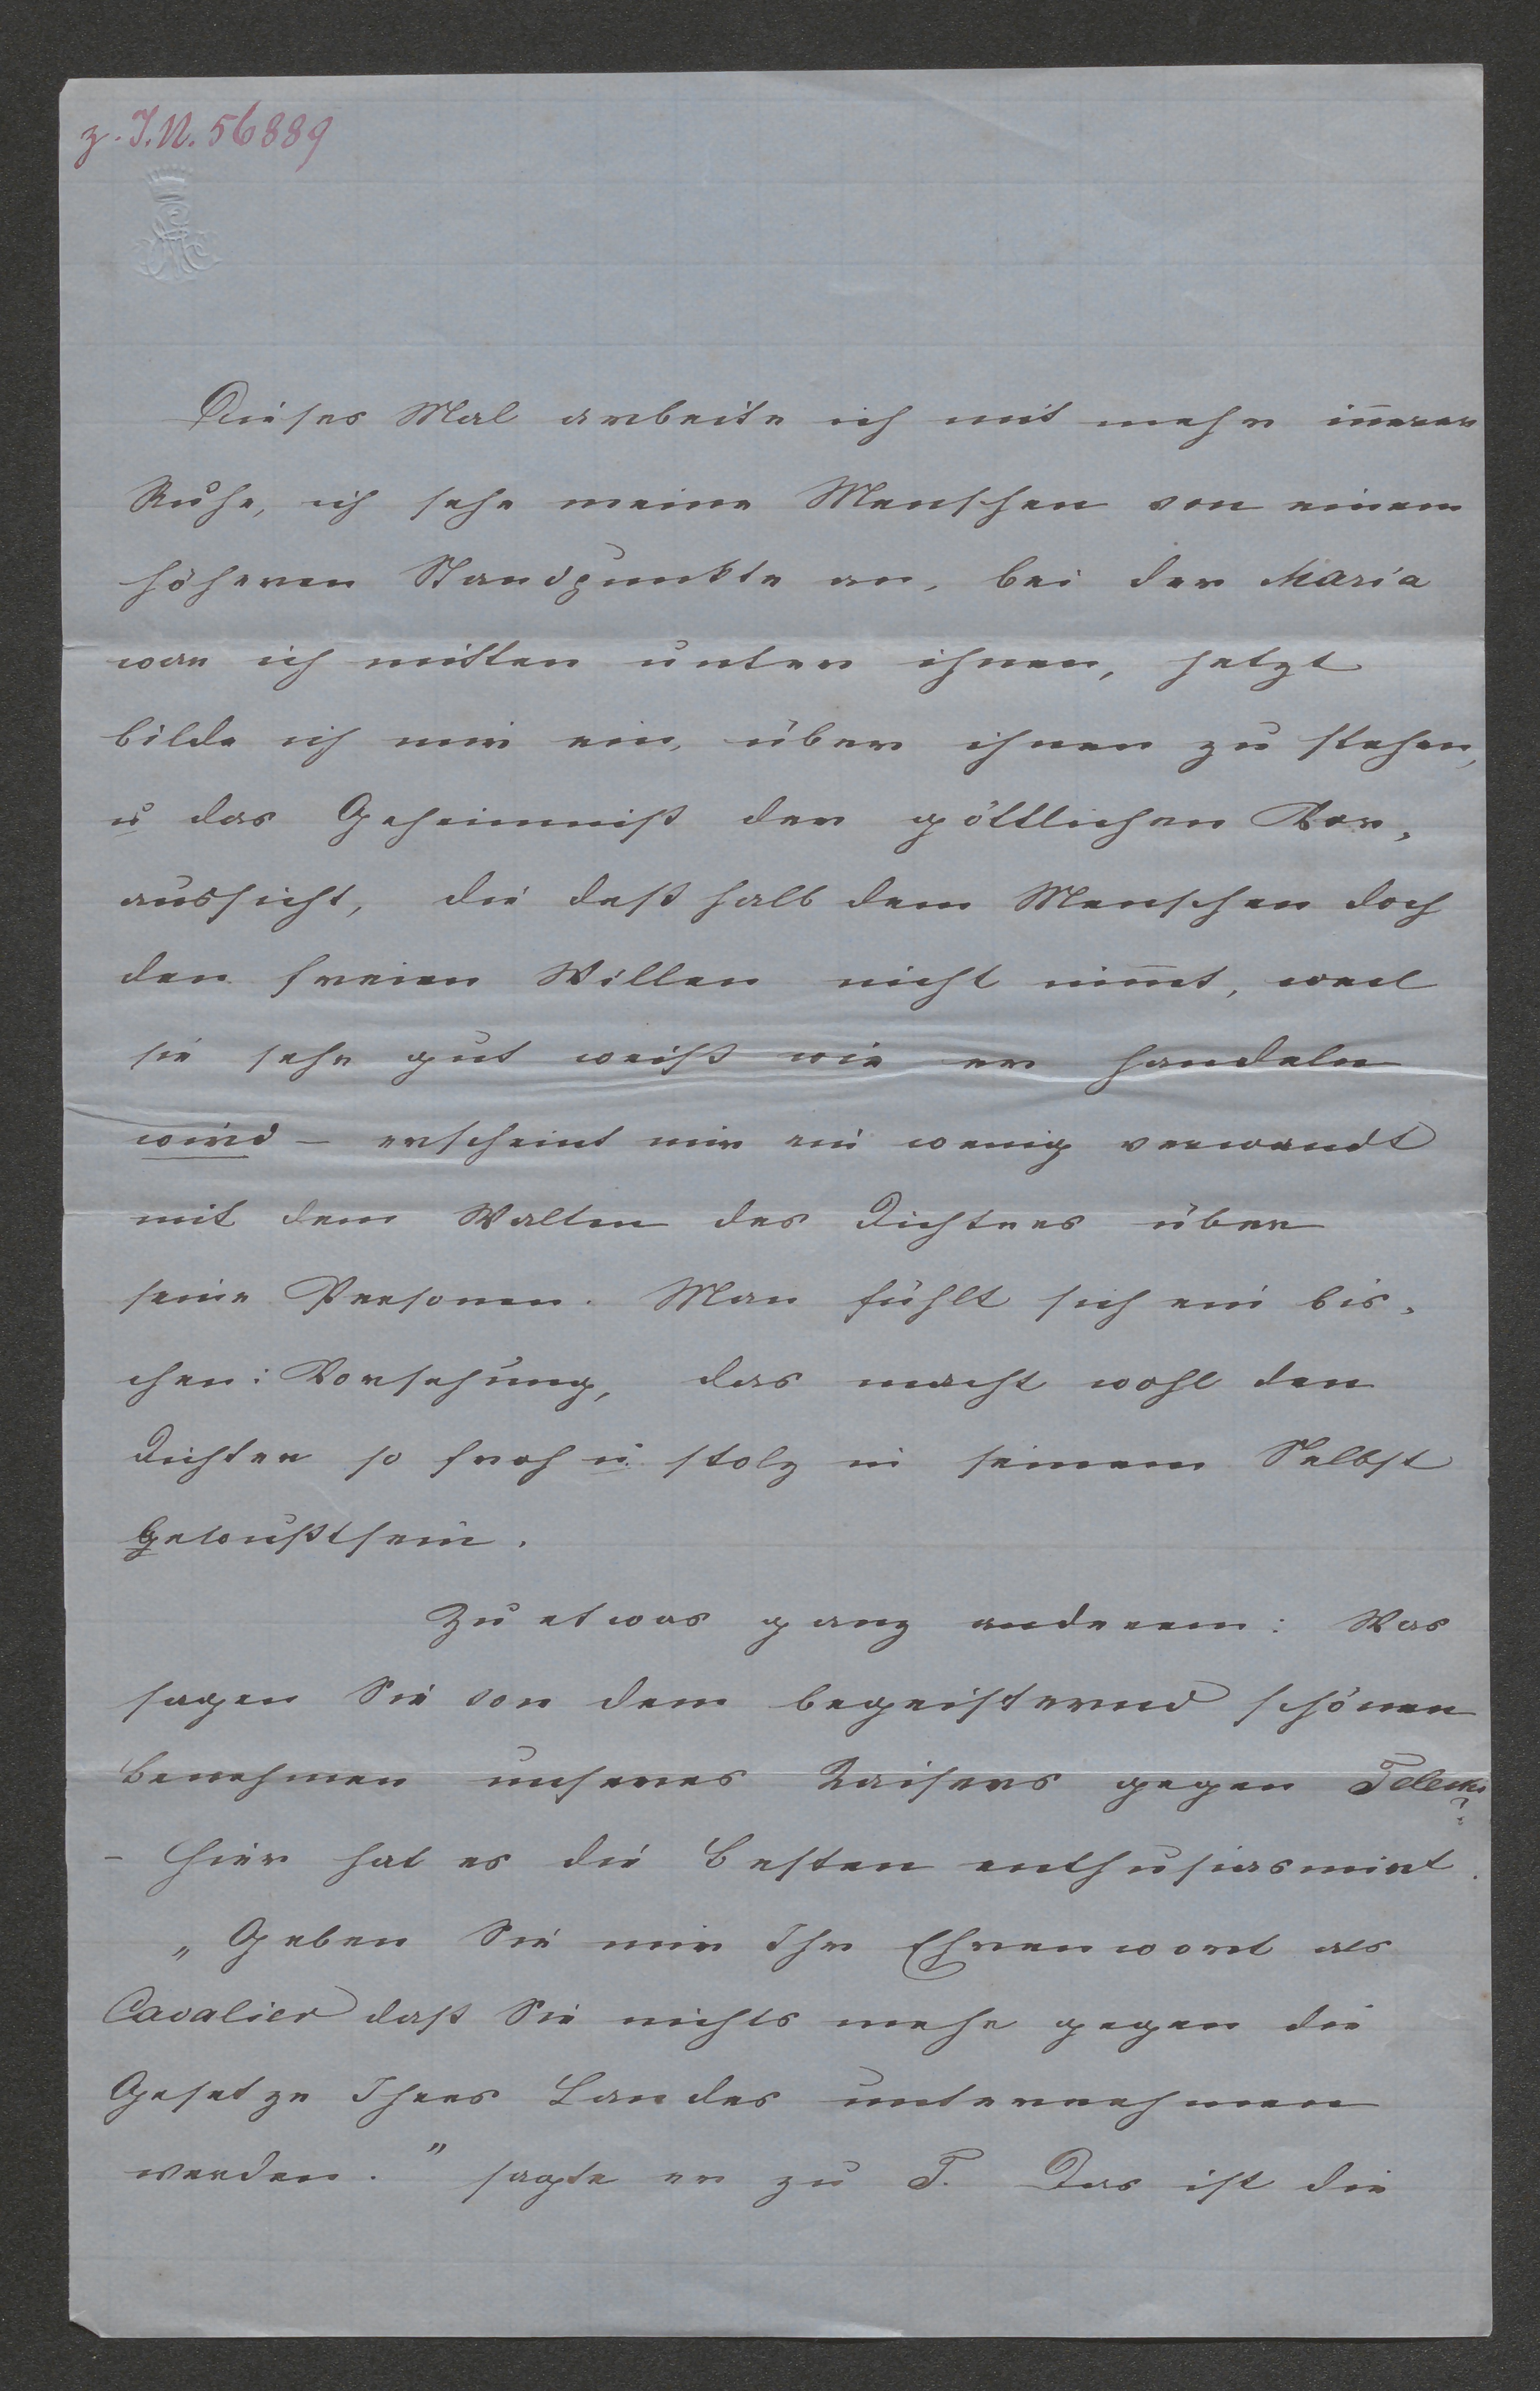 z. I.N. 56889
Dieses Mal arbeite ich mit mehr in̅erer
Ruhe, ich sehe meine Menschen von einem
höheren Standpunkte an, bei der Maria
war ich mitten unter ihnen, jetzt
bilde ich mir ein, über ihnen zu stehen,
u das Geheimniß der göttlichen Vor,
aussicht, die deßhalb dem Menschen doch
den freien Willen nicht nim̅t, weil
sie sehr gut weiß wie er handeln
wird – erscheint mir ein wenig verwandt
mit dem Walten des Dichters über
seine Personen. Man fühlt sich ein bis,
chen: Vorsehung, das macht wohl den
Dichter so froh u stolz in seinem Selbst
bewußtsein.
Zu etwas ganz anderem: Was
sagen Sie von dem begeisternd schönen
Benehmen unseres Kaisers gegen Teleki?
– Hier hat es die Besten enthusiasmirt.
„Geben Sie mir Ihr Ehrenwort als
Cavalier daß Sie nichts mehr gegen die
Gesetze Ihres Landes unternehmen
werden." sagte er zu T. Das ist die